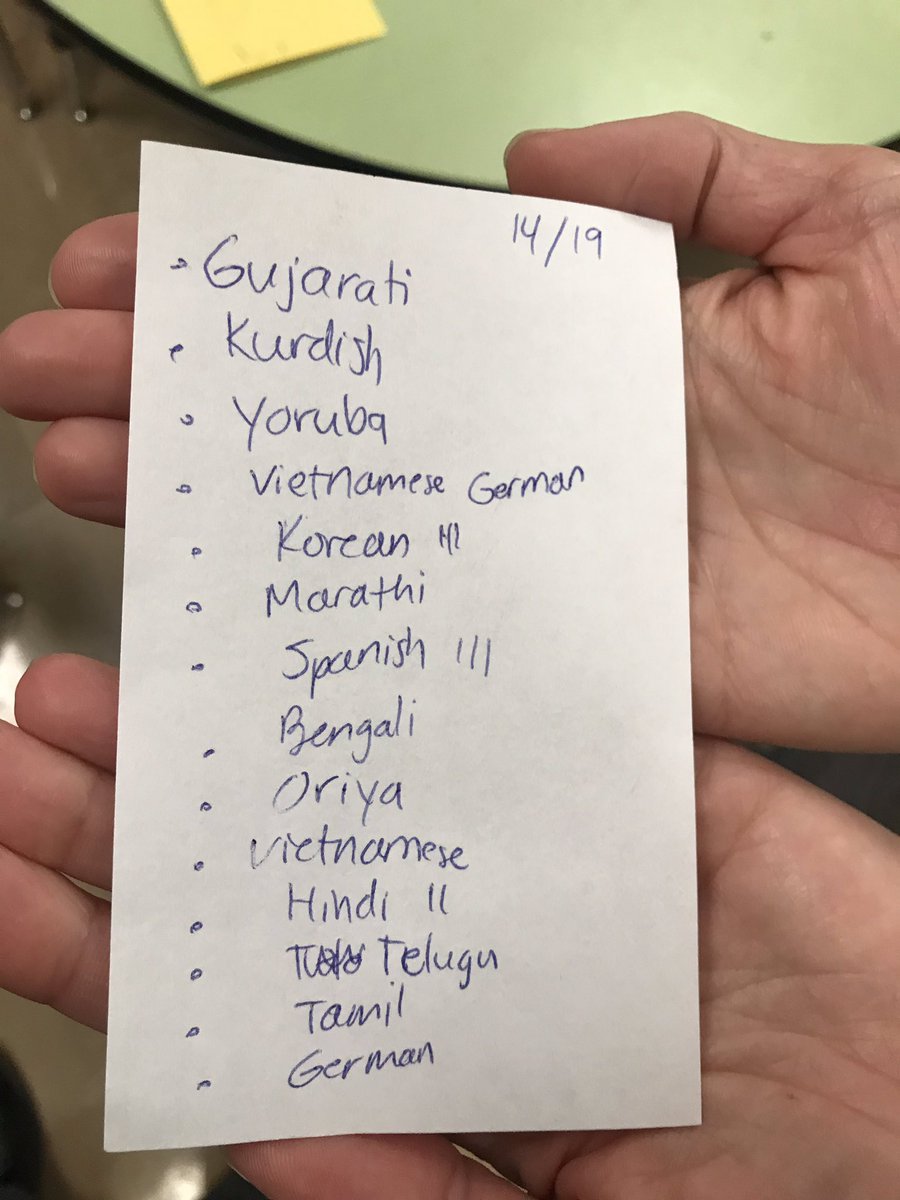 14/19
• Gujarati
• Kurdish
• Yoruba
• Vietnamese German
• Korean |||
• Marathi
• Spanish |||
• Bengali
• Oriya
• Vietnamese
• Hindi ||
• Telugu
• Tamil
• German